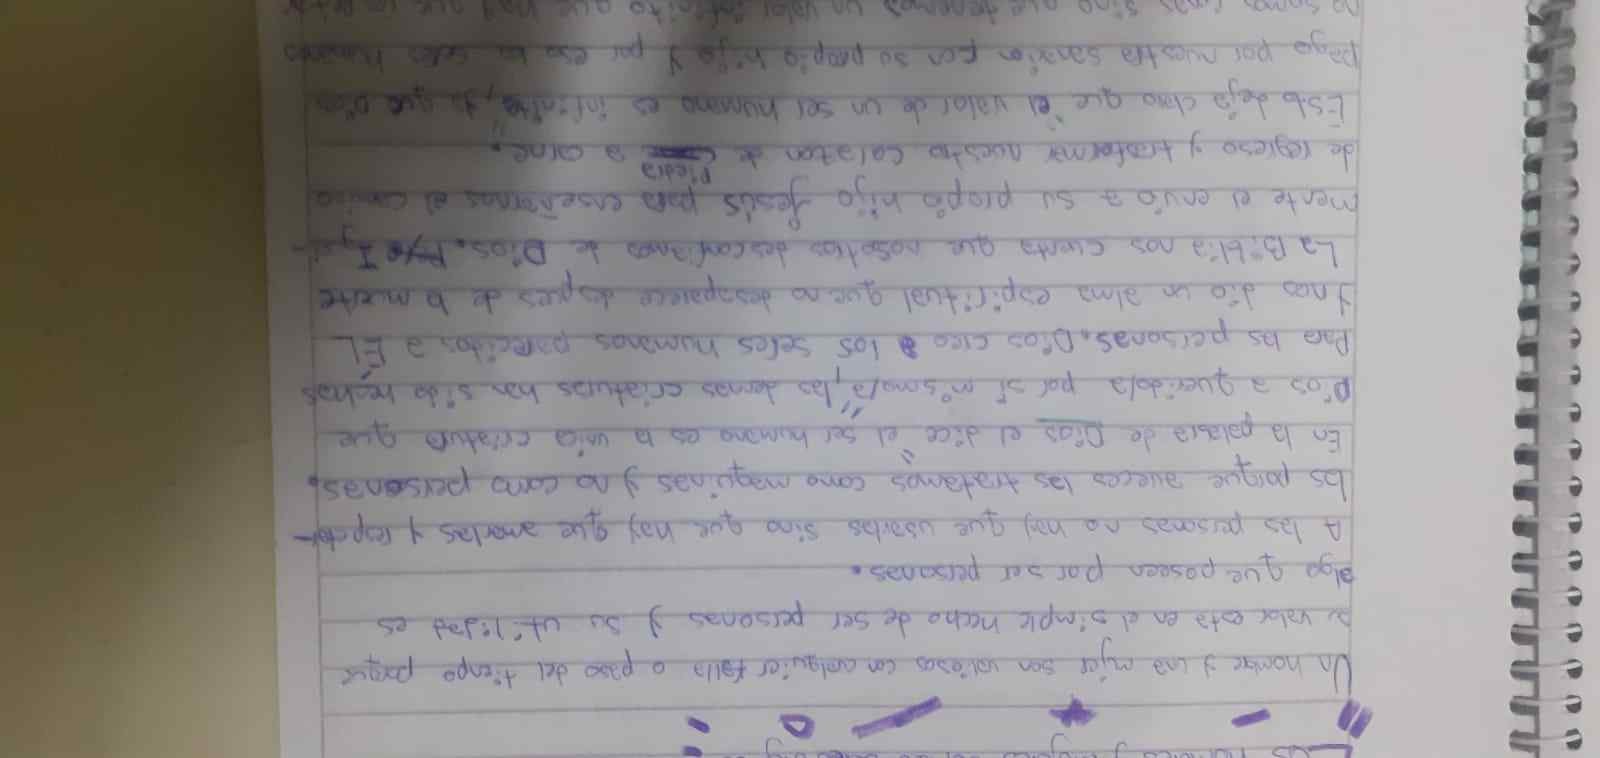 Un hombre y una mujer son valiosos con cualquier falla o paso del tiempo porque
su valor esta en el simple hecho de ser personas y su utilidad es
algo que poseen por ser personas.
A las personas no hay que usarlas sino que hay que amarlas y respetar-
las porque aveces las tratamos como maquinas y no como personas.
En la palabra de Dios el dice "el ser humano es la unica criatura que
Dios a querido/a por sí mismo/a", las demas criaturas han sido hechas
Para las personas. Dios creo a los seres humanos parecidos a ÉL
y nos dio un alma espiritual que no desaparece despues de la muerte
La Biblia nos cuenta que nosotros desconfiamos de Dios. Igual-
mente el envio a su propio hijo Jesús para enseñarnos el camino
de regreso y trasformar nuestro corazon de piedra a carne.
Esto deja claro que "el valor de un ser humano es infinito", ya que Dios
pago por nuestra sancion con su propio hijo y por eso los seres humanos
no somos cosas sino que tenemos un valor infinito que hay que